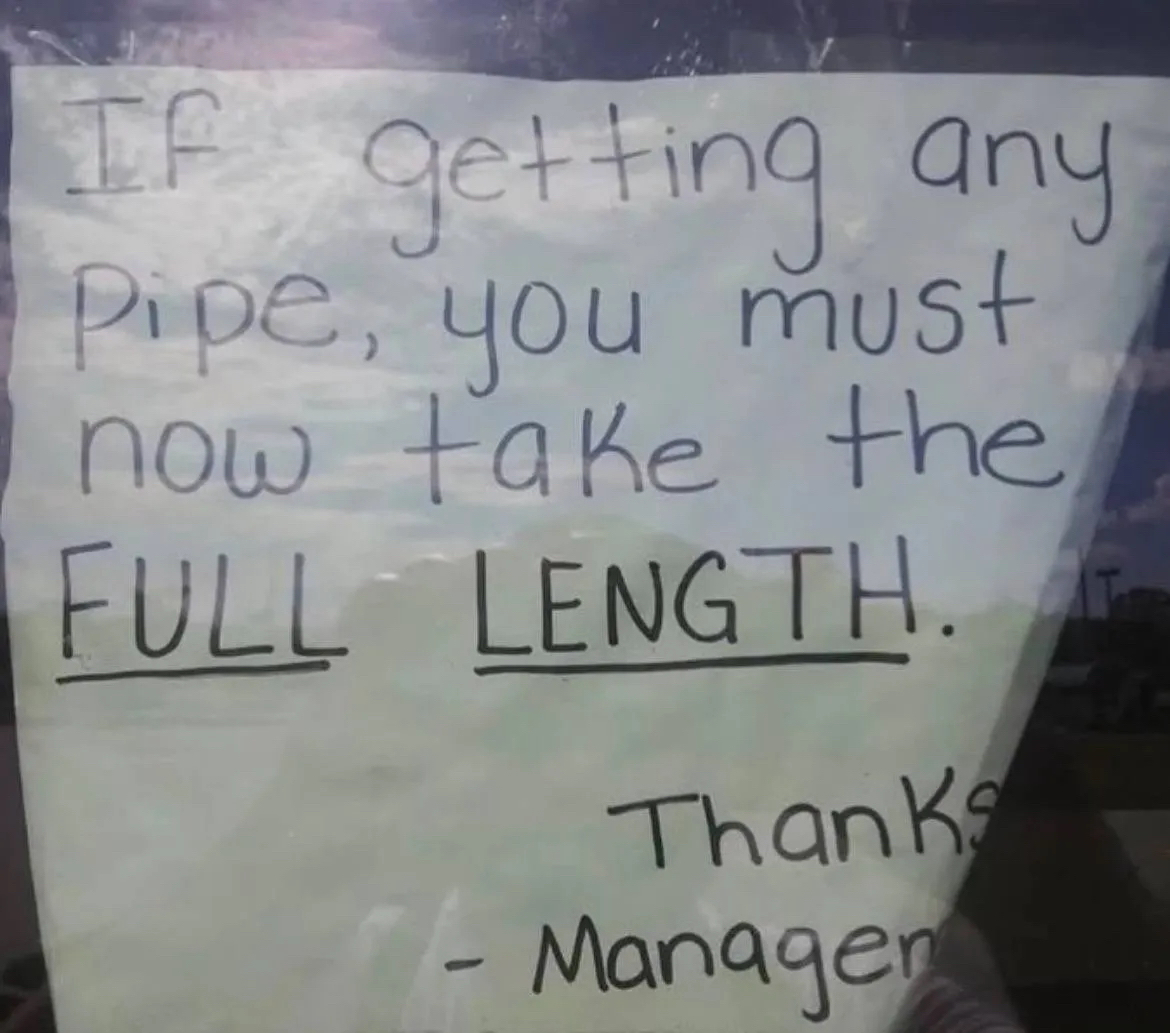 If getting any
Pipe, you must
now take the
FULL LENGTH.
Thanks
- Managem